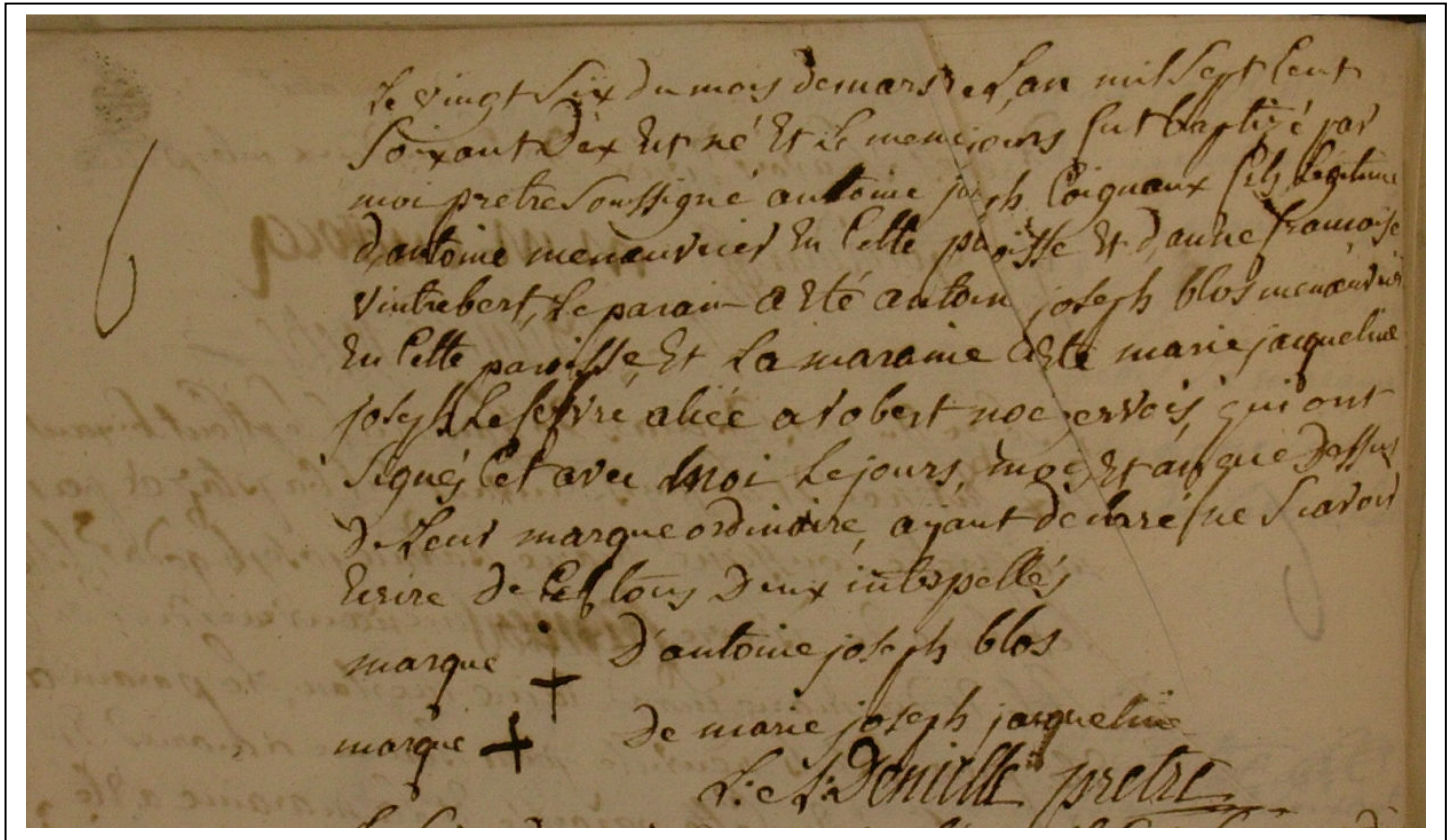 6
Le vingt Six du mois de mars de L'an mil Sept Cent
Soixant Dex Est né Et Le meme jours fut baptizé par
moi pretre Soussigné antoine joseph Coignaux fils Legitime
d'antoine menauvrier En Cette paroisse Et d'anne francoise
vintrebert, Le parain a Eté antoin joseph blos menœuvrier
En Cette paroisse, Et La maraine a Eté marie jacqueline
joseph Lefebvre aliée a robert noe gervois, qui ont
Signés Cet avec moi Le jours, mois Et an que Dessus
De Leur marque ordinaire, ayant declaré ne Scavoir
Ecrire de Ce tous Deux interpellés
marque + D'antoine joseph blos
marque + De marie joseph jacqueline
L: A: Denielle pretre